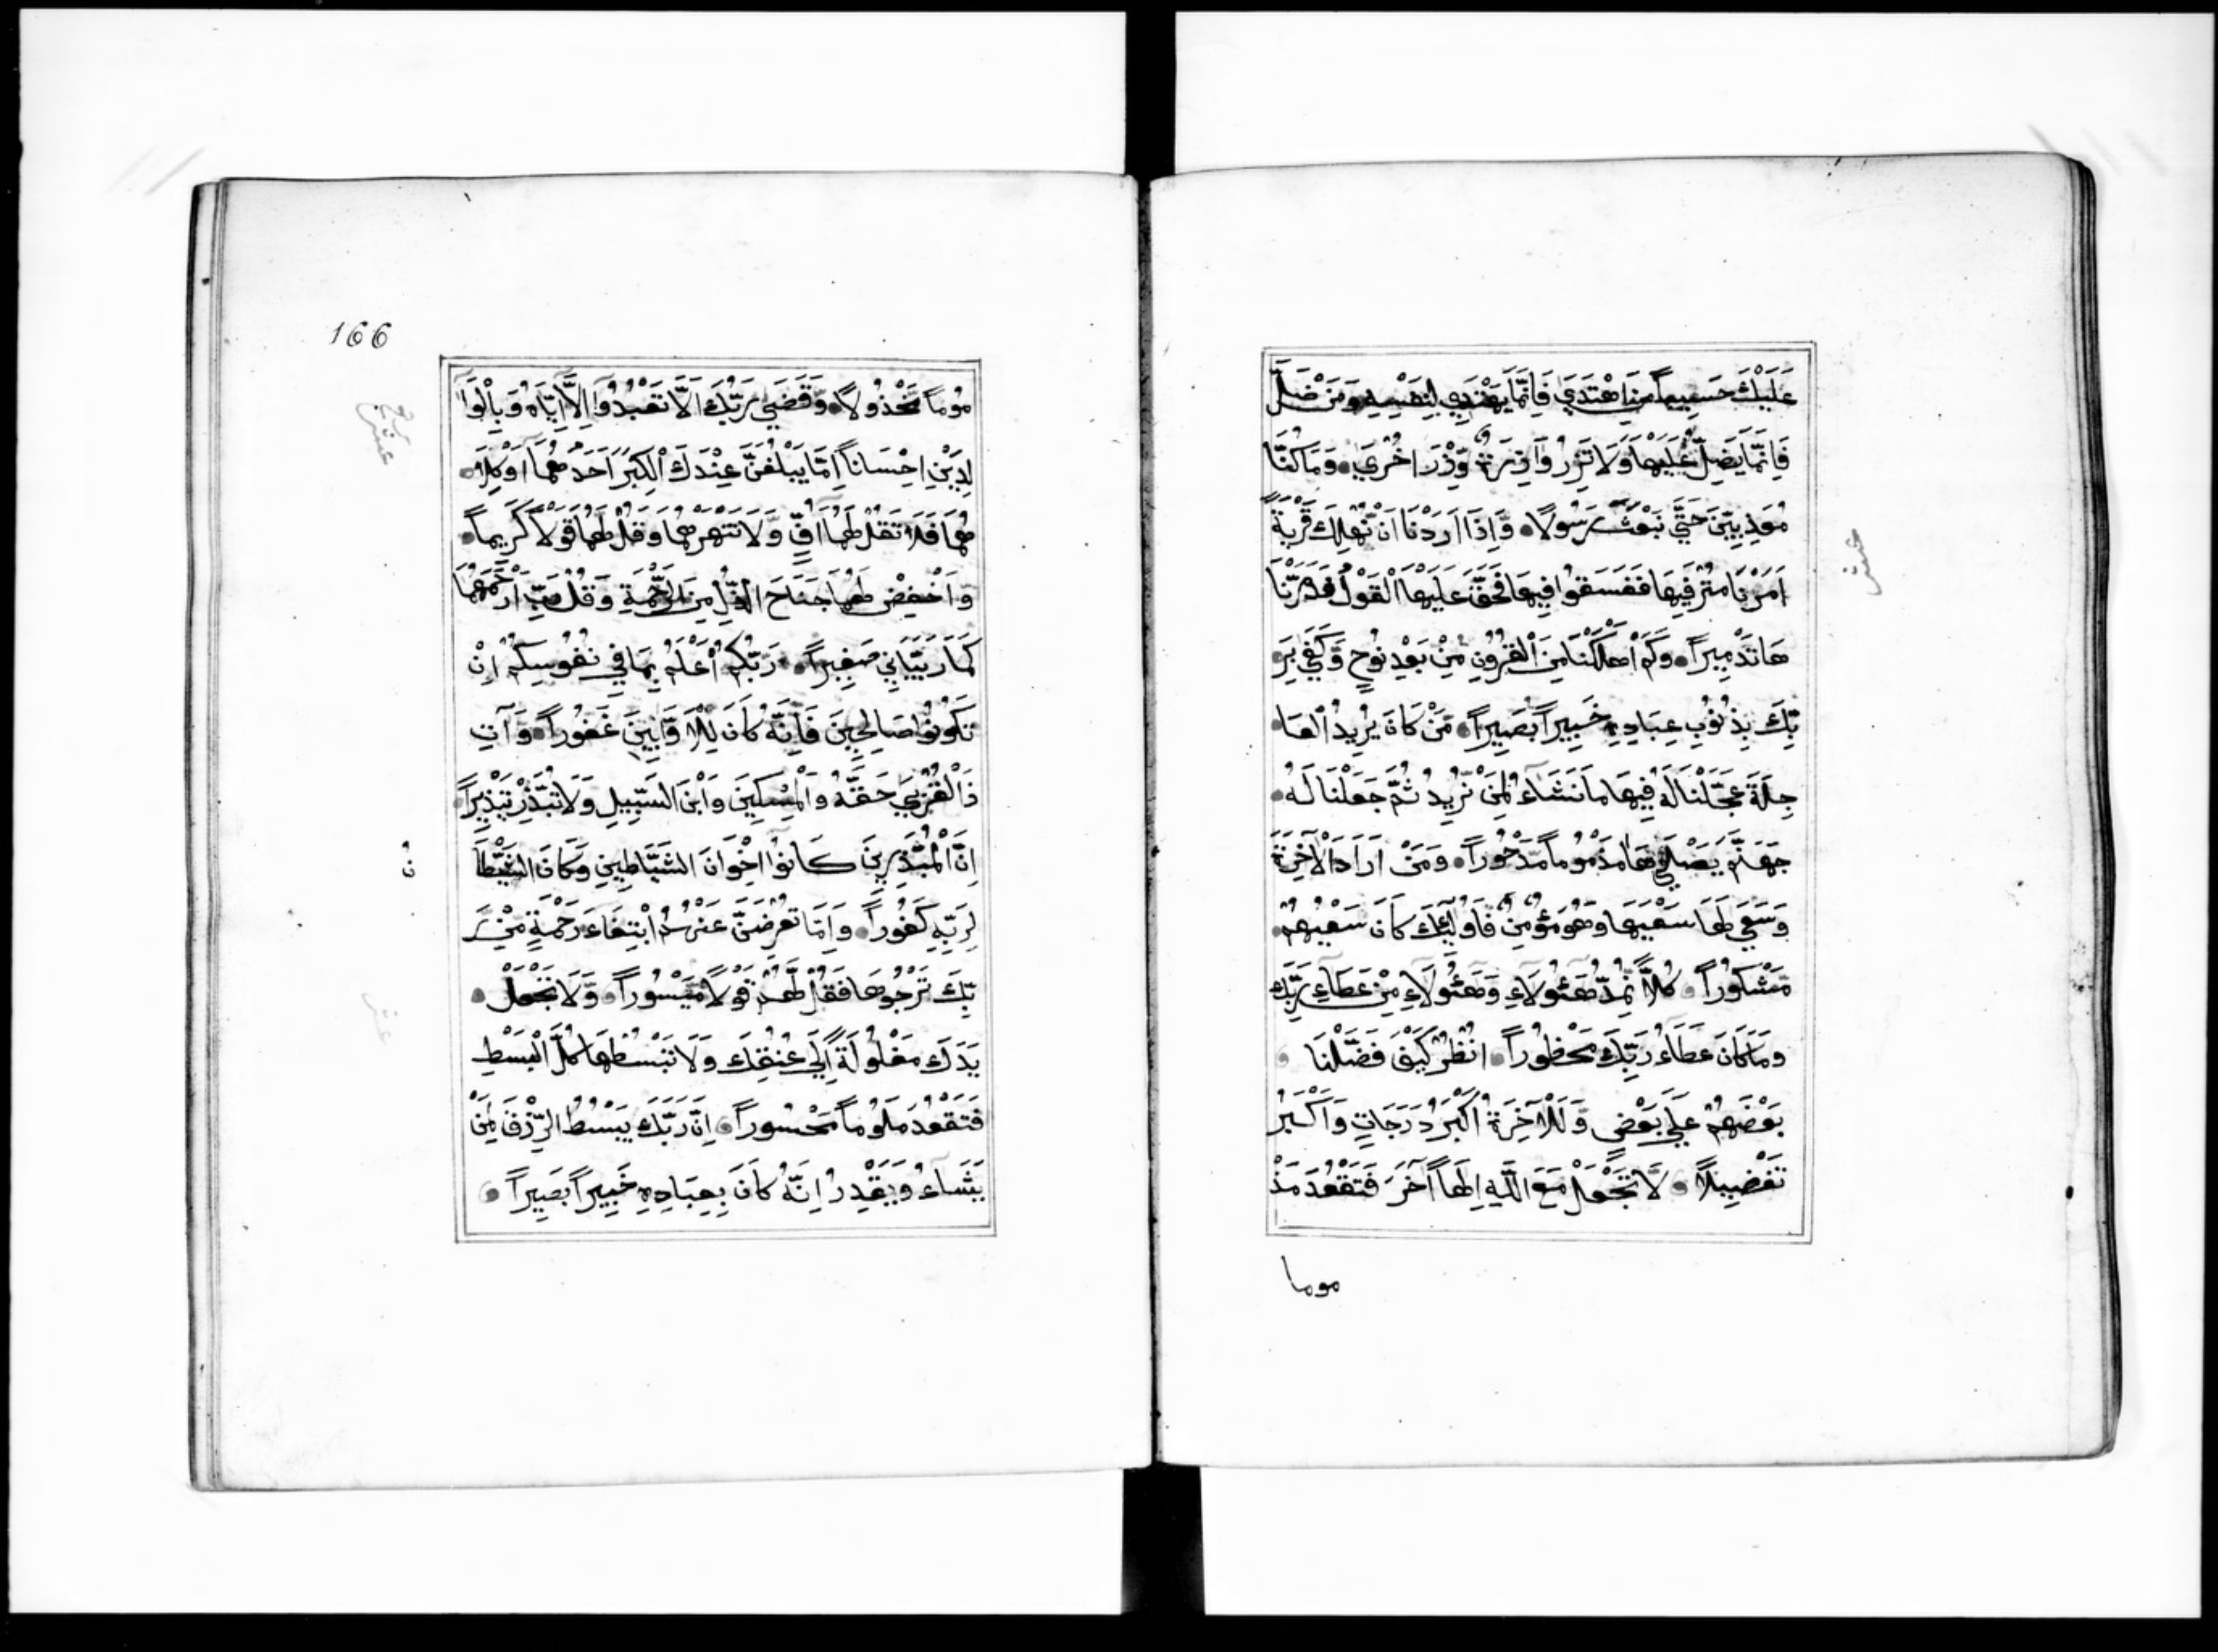 عَلَيْكَ حَسِيباً مَنِ اهْتَدَي فَاِنَّمَا يَهْتَدِي لِنَفْسِهِ وَمَنْ ضَلَّ
فَاِنَّمَا يَضِلُّ عَلَيْهَا وَلَا تَزِرُ وَازِرَةٌ وِّزْرَ اُخْرَي وَمَا كُنَّا
مُعَذِّبِيْنَ حَتَّي نَبْعَثَ رَسُولًا وَّاِذَا اَرَدْنَا اَنْ نُّهْلِكَ قَرْيَةً
اَمَرْنَا مُتْرَفِيهَا فَفَسَقُوا فِيهَا فَحَقَّ عَلَيْهَا الْقَوْلُ فَدَمَّرْنَا
هَا تَدْمِيراً وَكَمْ اَهْلَكْنَا مِنَ الْقُرُونِ مِنْ بَعْدِ نُوحٍ وَّكَفَي بِرَ
بِّكَ بِذُنُوبِ عِبَادِهِ خَبِيراً بَصِيراً مَنْ كَانَ يُرِيدُ الْعَا
جِلَةَ عَجَّلْنَا لَهُ فِيهَا مَا نَشَاءُ لِمَنْ نُّرِيدُ ثُمَّ جَعَلْنَا لَهُ
جَهَنَّمَ يَصْلَيهَا مَذْمُوماً مَّدْحُوراً وَمَنْ اَرَادَ الْآخِرَةَ
وَسَعَي لَهَا سَعْيَهَا وَهُوَ مُؤْمِنٌ فَاُولَئِكَ كَانَ سَعْيُهُمْ
مَّشْكُوراً كُلًّا نُّمِدُّ هَئُولَاءِ وَهَئُولَاءِ مِنْ عَطَاءِ رَبِّكَ
وَمَا كَانَ عَطَاءُ رَبِّكَ مَحْظُوراً انْظُرْ كَيْفَ فَضَّلْنَا
بَعْضَهُمْ عَلَي بَعْضٍ وَّلَلْآخِرَةُ اَكْبَرُ دَرَجَاتٍ وَاَكْبَرُ
تَفْضِيلًا لَّا تَجْعَلْ مَعَ اللَّهِ اِلَهاً آخَرَ فَتَقْعُدَ مَذْ
موما
عشر
166
مُوماً مَّخْذُولًا وَّقَضَي رَبُّكَ اَلَّا تَعْبُدُوا اِلَّا اِيَّاهُ وَبِالْوَا
لِدَيْنِ اِحْسَاناً اِمَّا يَبْلُغَنَّ عِنْدَكَ الْكِبَرَ اَحَدُهُمَا اَوْ كِلَا
هُمَا فَلَا تَقُلْ لَهُمَا اُفٍّ وَّلَا تَنْهَرْهُمَا وَقُلْ لَهُمَا قَوْلًا كَرِيماً
وَّاخْفِضْ لَهُمَا جَنَاحَ الذُّلِّ مِنَ الرَّحْمَةِ وَقُلْ رَّبِّ ارْحَمْهُمَا
كَمَا رَبَّيَانِي صَغِيراً رَبُّكُمْ اَعْلَمُ بِمَا فِي نُفُوسِكُمْ اِنْ
تَكُونُوا صَالِحِينَ فَاِنَّهُ كَانَ لِلْاَوَّابِينَ غَفُوراً وَآتِ
ذَا الْقُرْبَي حَقَّهُ وَالْمِسْكِينَ وَابْنَ السَّبِيلِ وَلَا تُبَذِّرْ تَبْذِيراً
اِنَّ الْمُبَذِّرِينَ كَانُوا اِخْوَانَ الشَّيَاطِينِ وَكَانَ الشَّيْطَا
نُ
لِرَبِّهِ كَفُوراً وَاِمَّا تُعْرِضَنَّ عَنْهُمُ ابْتِغَاءَ رَحْمَةٍ مِّنْ رَ
بِّكَ تَرْجُوهَا فَقُلْ لَّهُمْ قَوْلًا مَّيْسُوراً وَّلَا تَجْعَلْ
يَدَكَ مَغْلُولَةً اِلَي عُنُقِكَ وَلَا تَبْسُطْهَا كُلَّ الْبَسْطِ
فَتَقْعُدَ مَلُوماً مَّحْسُوراً اِنَّ رَبَّكَ يَبْسُطُ الرِّزْقَ لِمَنْ
يَشَاءُ وَيَقْدِرُ اِنَّهُ كَانَ بِعِبَادِهِ خَبِيراً بَصِيراً
عشر